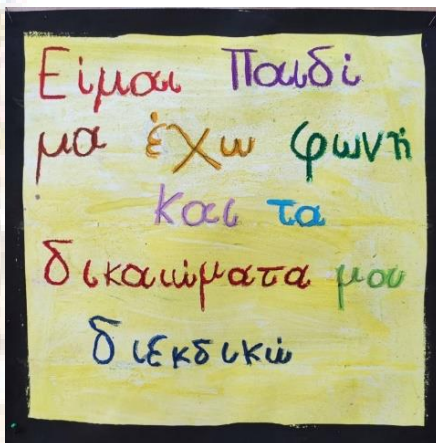 Είμαι Παιδί
μα έχω φωνή
και τα
δικαιώματα μου
διεκδικώ